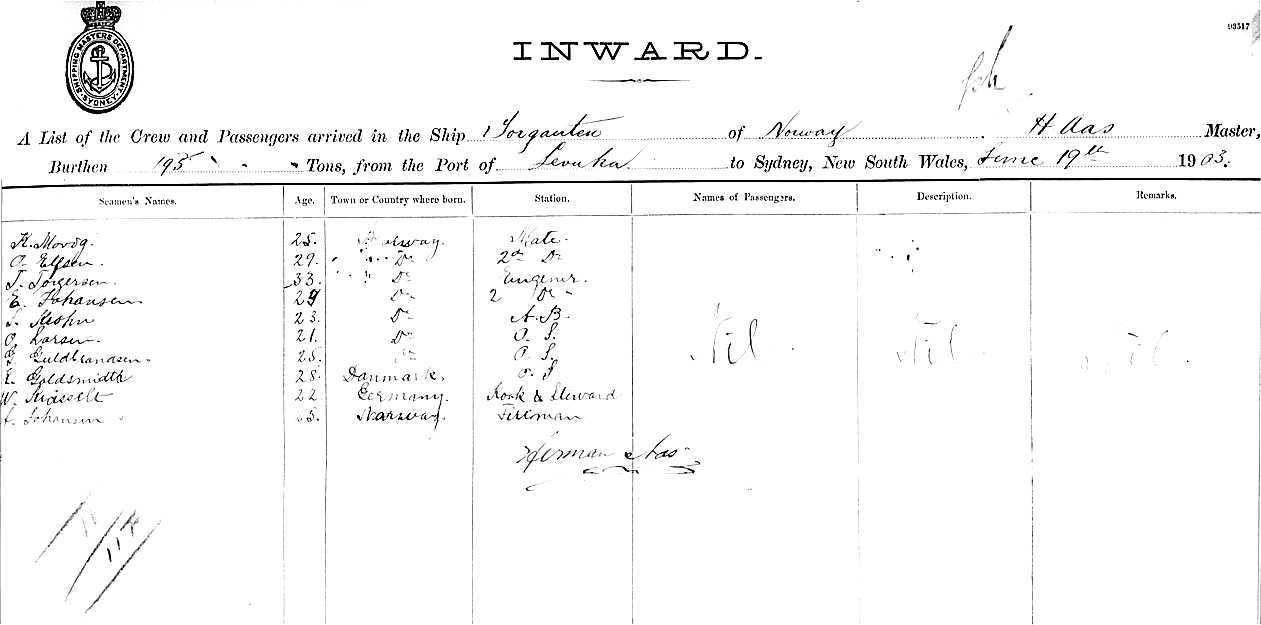 93517
SHIPPING MASTERS DEPARTMENT SYDNEY
INWARD.
A List of the Crew and Passengers arrived in the Ship Torgauten of Norway H Aas Master,
Burthen 195 Tons, from the Port of Levuka to Sydney, New South Wales, June 19th 1903.
Seamen's Names. Age. Town or Country where born. Station. Names of Passengers. Description. Remarks.
K. 25. Norway. Mate.
O. Elfsen. 29. Do 2nd Do
T. Torgersen. 33. Do Enginer.
E. Johansen 29 Do 2 Do
Krohn 23. Do A.B.
O. Larsen. 21. Do O. S.
G. Guldbrandsen. 25. Do O. S.
E. Goldsmidth 28. Danmark. O. S
W. 22 Germany. Kook & Steward
Johansen Norway. Fireman
Nil Nil Nil
Herman Aas.